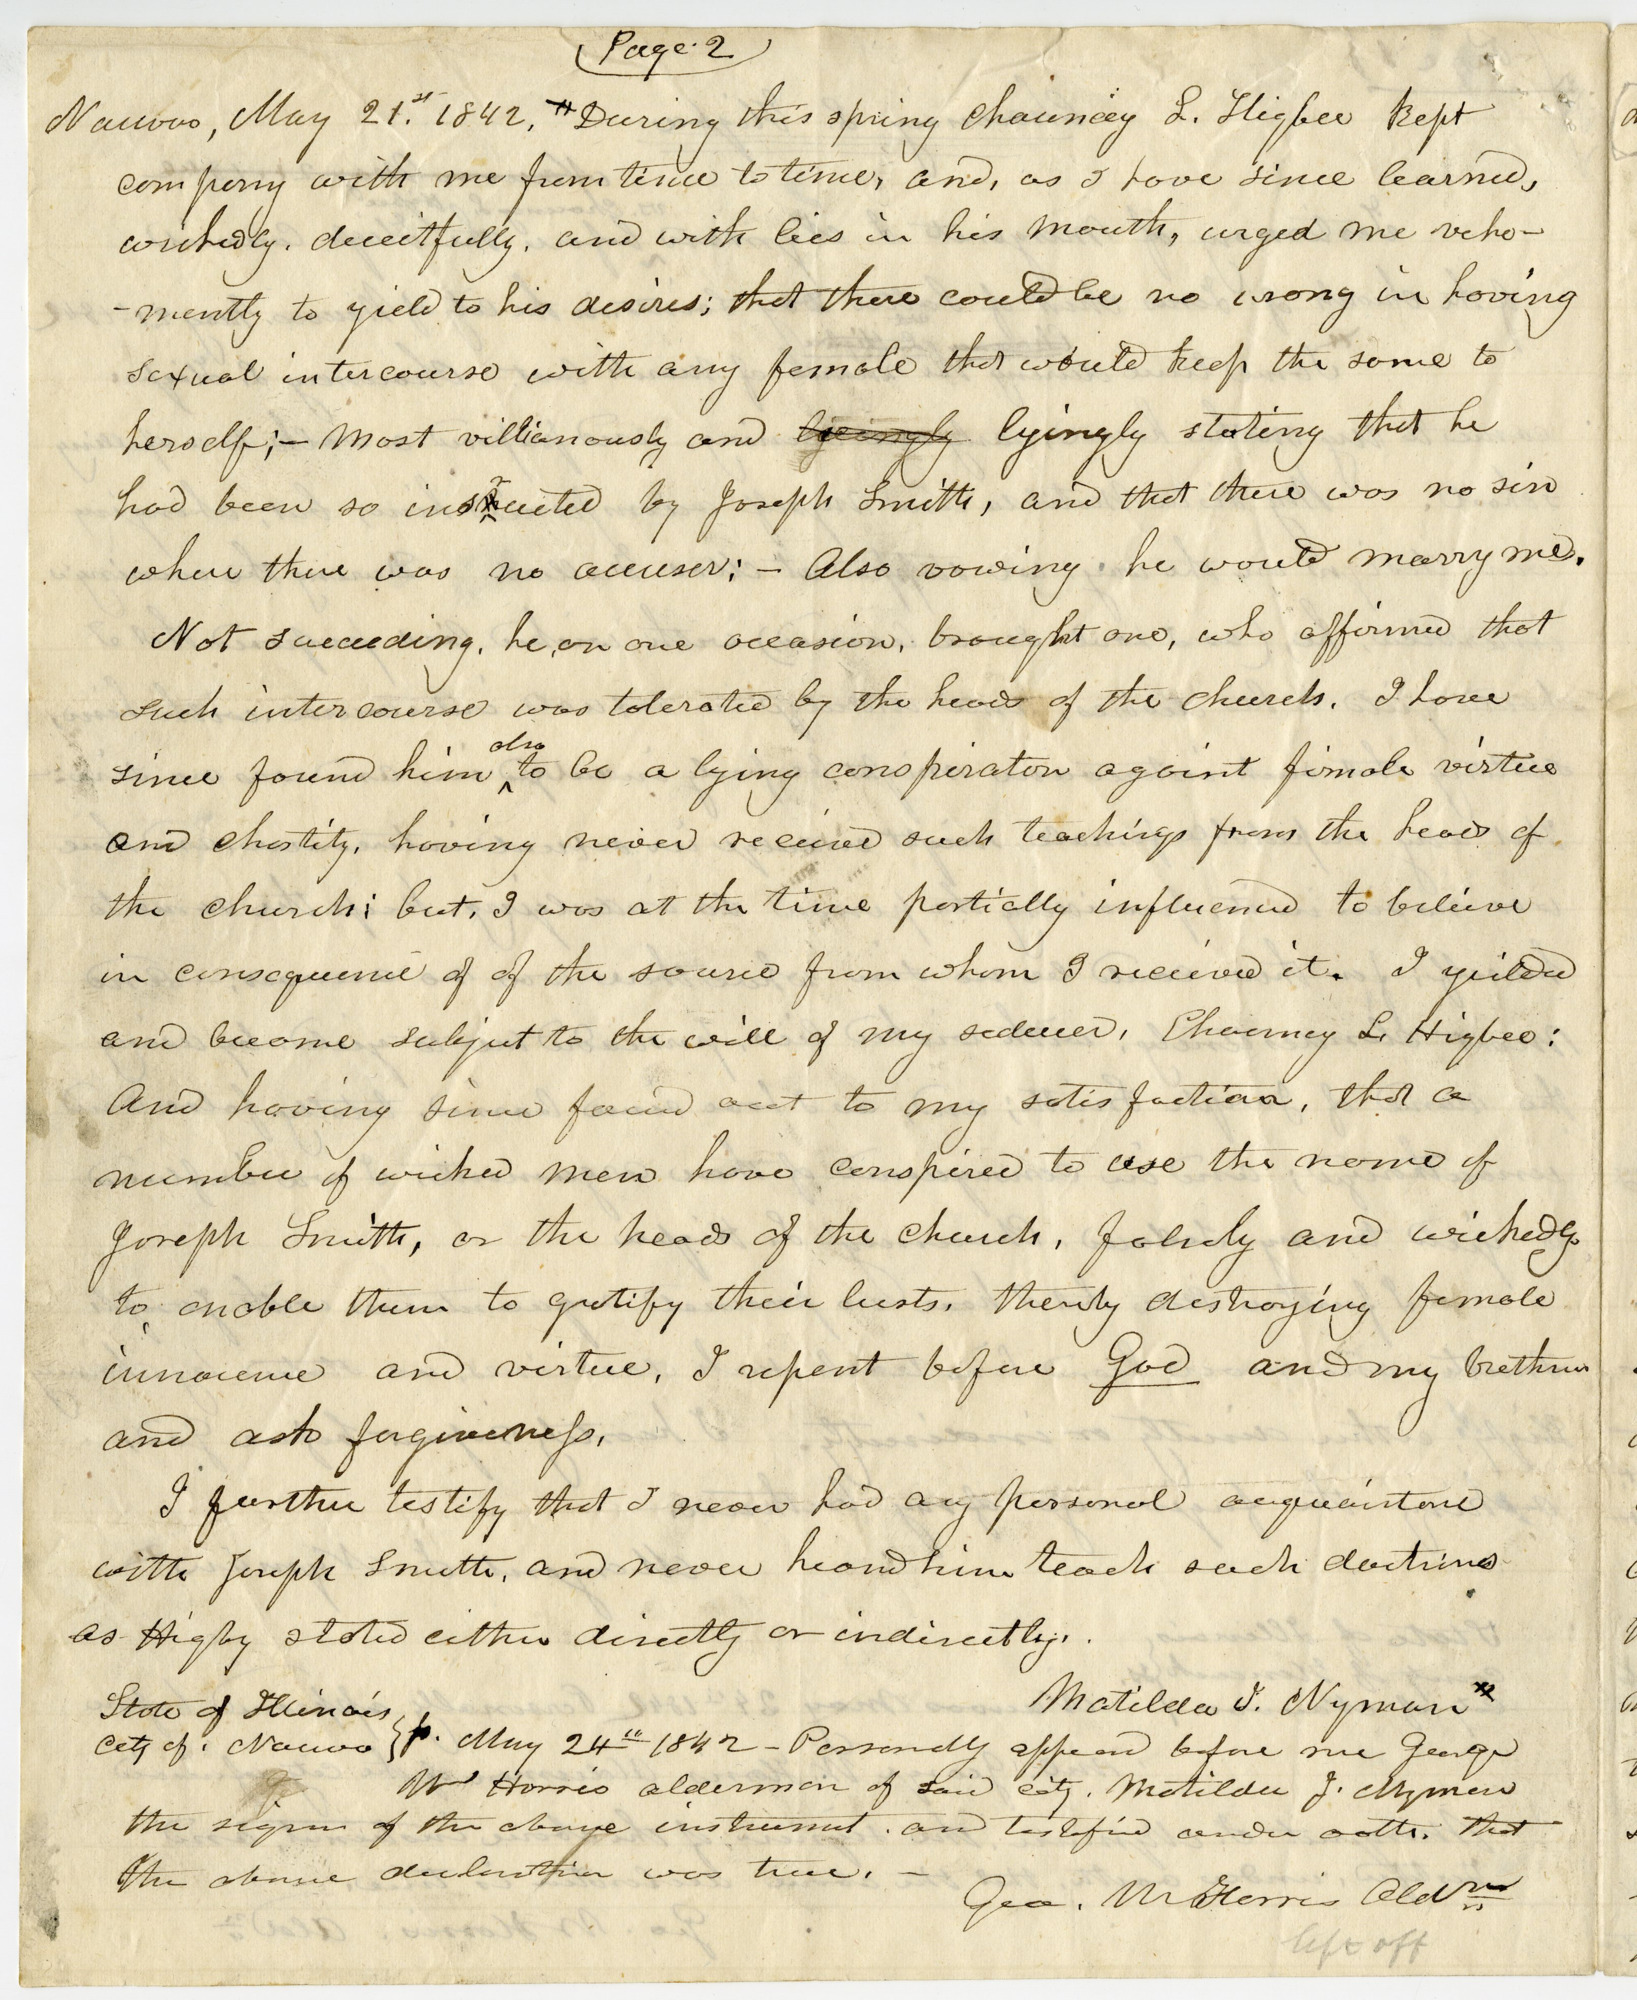 Page. 2
Nauvoo, May 21.st 1842, "During this spring Chauncey L. Higbee kept
company with me from time to time, and, as I have since learned,
wickedly, deceitfully, and with lies in his mouth, urged me vehe-
-mently to yield to his desires; that there could be no wrong in having
sexual intercourse with any female that would keep the same to
herself;— most villianously and lyeingly lyingly stating that he
had been so instructed by Joseph Smith, and that there was no sin
where there was no accuser:— Also vowing he would marry me.
Not succeeding, he, on one occasion, brought one, who affirmed that
such intercourse was tolerated by the heads of the church. I have
since found him also to be a lying conspirator against female virtue
and chastity, having never received such teachings from the heads of
the church; but, I was at the time partially influenced to believe
in consequence of of the source from whom I received it. I yeilded
and became subject to the will of my seducer, Chauncey L. Higbee:
And having since found out to my satisfaction, that a
number of wicked men have conspired to use the name of
Joseph Smith, or the heads of the church, falsely and wickedly
to enable them to gratify their lusts, thereby destroying female
innocence and virtue, I repent before God and my brethren
and ask forgiveness.
I further testify that I never had any personal acquaintance
with Joseph Smith, and never heard him teach such doctrines
as Higby stated either directly or indirectly.
Matilda J. Nyman"
State of Illinois,
City of. Nauvoo } May 24th 1842 - Personally appeared before me George
W. Harris alderman of said city, Matilda J. Nyman
the signer of the above instrument, and testified under oath, that
the above declaration was true. —
Geo. W Harris Aldrm
left off